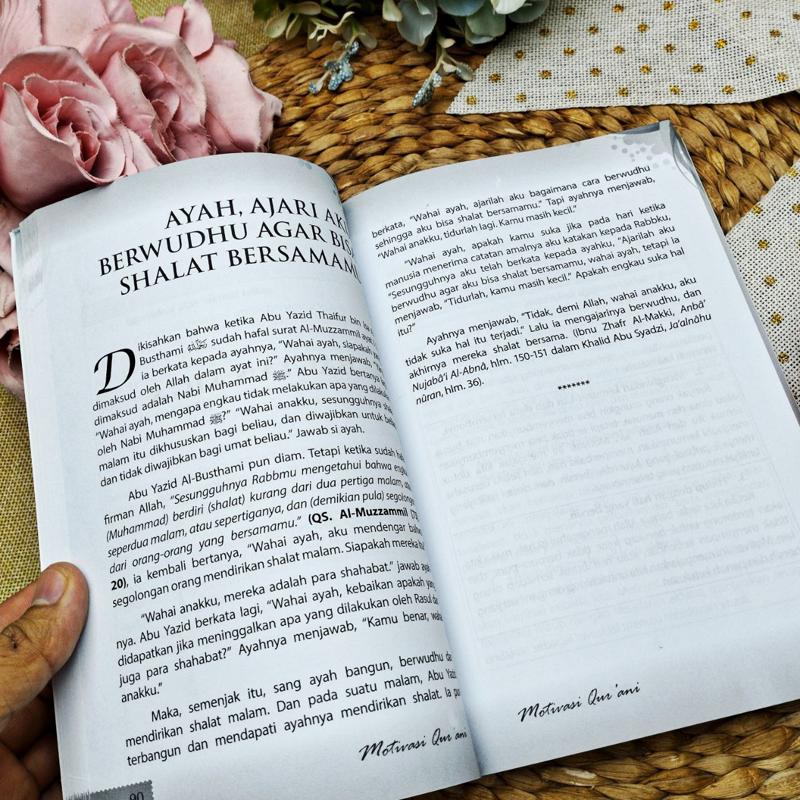 AYAH, AJARI AK
BERWUDHU AGAR BIS
SHALAT BERSAMAM
Dikisahkan bahwa ketika Abu Yazid Thaifur bin Isa
Busthami sudah hafal surat Al-Muzzammil aya
ia berkata kepada ayahnya, "Wahai ayah, siapakah y
dimaksud oleh Allah dalam ayat ini?" Ayahnya menjawab, "
dimaksud adalah Nabi Muhammad ﷺ." Abu Yazid bertanya
"Wahai ayah, mengapa engkau tidak melakukan apa yang dilaku
oleh Nabi Muhammad ﷺ?" "Wahai anakku, sesungguhnya sh
malam itu dikhususkan bagi beliau, dan diwajibkan untuk be
dan tidak diwajibkan bagi umat beliau." Jawab si ayah.
Abu Yazid Al-Busthami pun diam. Tetapi ketika sudah ha
firman Allah, "Sesungguhnya Rabbmu mengetahui bahwa engk
(Muhammad) berdiri (shalat) kurang dari dua pertiga malam, a
seperdua malam, atau sepertiganya, dan (demikian pula) segolong
dari orang-orang yang bersamamu." (QS. Al-Muzzammil [73
20), ia kembali bertanya, "Wahai ayah, aku mendengar bahw
segolongan orang mendirikan shalat malam. Siapakah mereka itu
"Wahai anakku, mereka adalah para shahabat." jawab aya
nya. Abu Yazid berkata lagi, "Wahai ayah, kebaikan apakah yan
didapatkan jika meninggalkan apa yang dilakukan oleh Rasul da
juga para shahabat?" Ayahnya menjawab, "Kamu benar, waha
anakku."
Maka, semenjak itu, sang ayah bangun, berwudhu da
mendirikan shalat malam. Dan pada suatu malam, Abu Yazi
terbangun dan mendapati ayahnya mendirikan shalat. Ia pu
Motivasi Qur'ani
90
berkata, "Wahai ayah, ajarilah aku bagaimana cara berwudhu
sehingga aku bisa shalat bersamamu." Tapi ayahnya menjawab,
"Wahai anakku, tidurlah lagi. Kamu masih kecil."
"Wahai ayah, apakah kamu suka jika pada hari ketika
manusia menerima catatan amalnya aku katakan kepada Rabbku,
"Sesungguhnya aku telah berkata kepada ayahku, "Ajarilah aku
berwudhu agar aku bisa shalat bersamamu, wahai ayah, tetapi ia
menjawab, "Tidurlah, kamu masih kecil." Apakah engkau suka hal
itu?"
Ayahnya menjawab, "Tidak, demi Allah, wahai anakku, aku
tidak suka hal itu terjadi." Lalu ia mengajarinya berwudhu, dan
akhirnya mereka shalat bersama. (Ibnu Zhafr Al-Makki, Anbâ'
Nujabâ'i Al-Abnâ, hlm. 150-151 dalam Khalid Abu Syadzi, Ja'alnâhu
nûran, hlm. 36).
*******
Motivasi Qur'ani